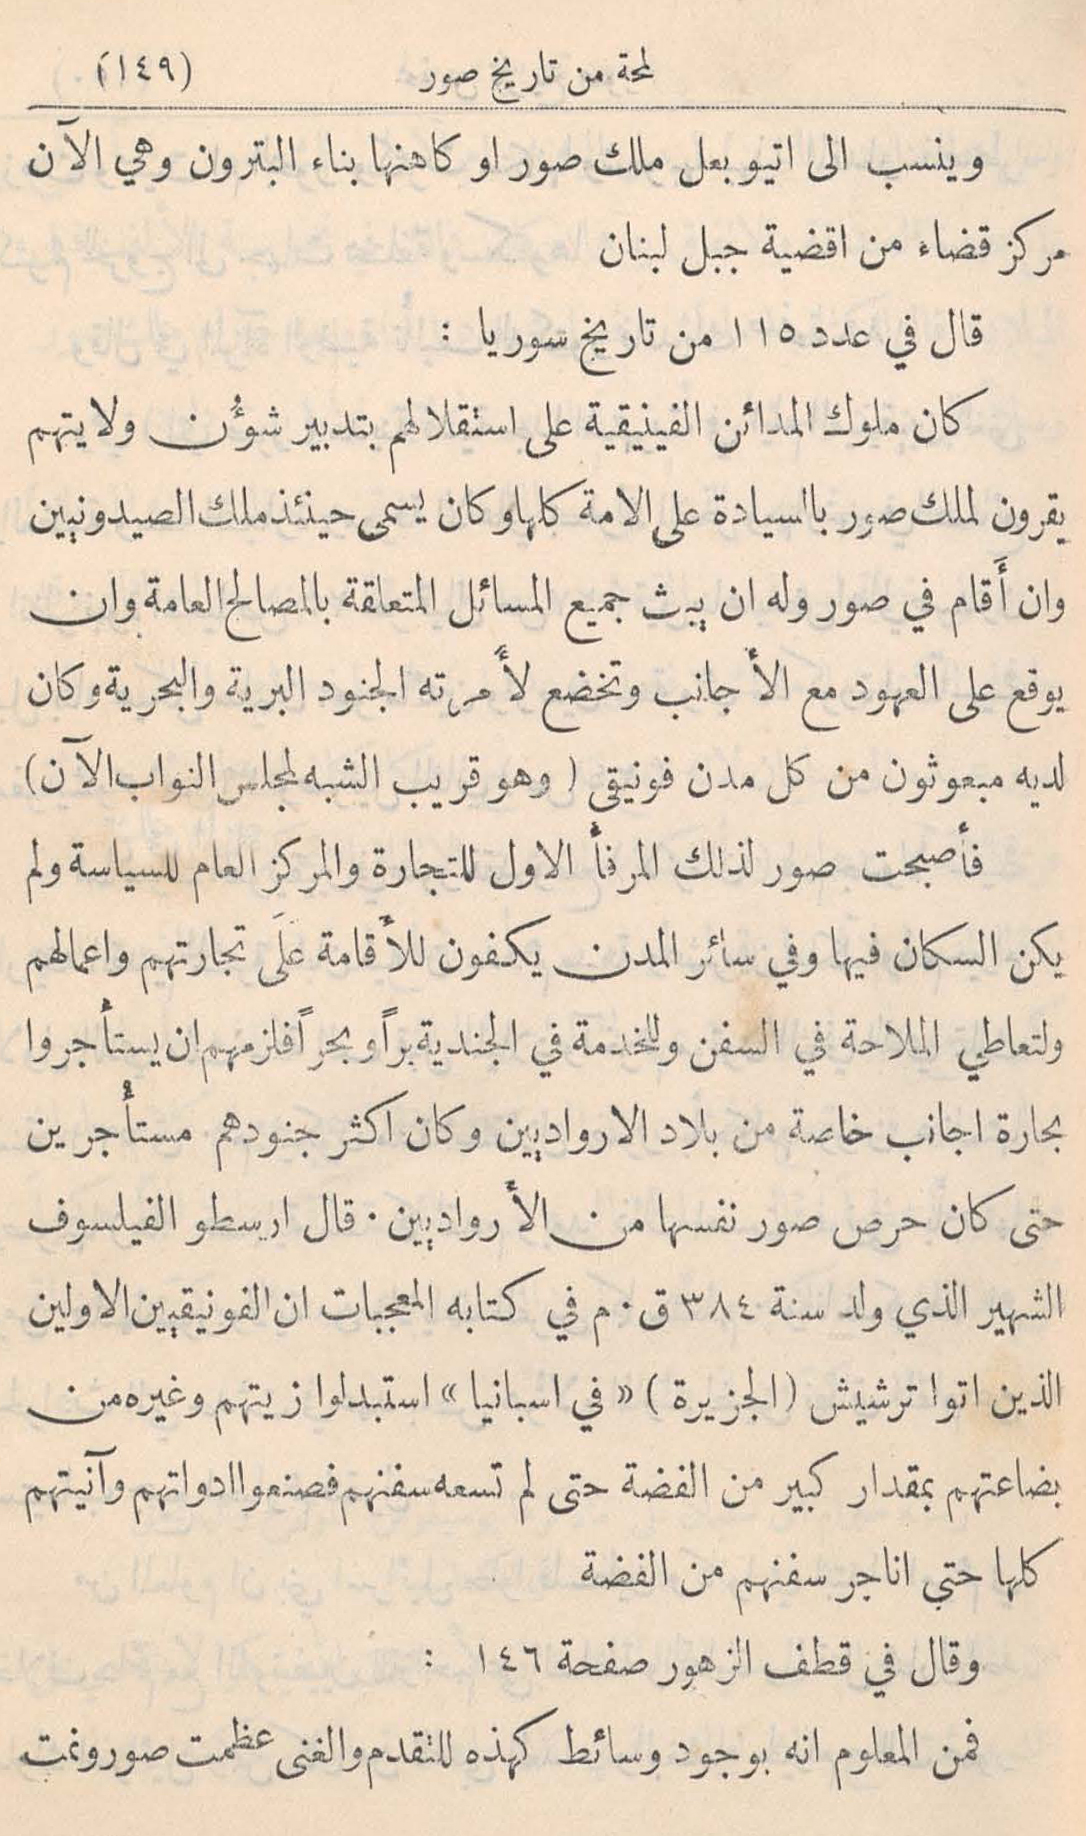 لمحة من تاريخ صور (١٤٩)
وينسب الى اتيوبعل ملك صور او كاهنها بناء البترون وهي الآن
مركز قضاء من اقضية جبل لبنان
قال في عدد ١١٥ من تاريخ سوريا :
كان ملوك المدائن الفينيقية على استقلالهم بتدبير شؤُن ولايتهم
يقرون لملك صور بالسيادة على الامة كلها وكان يسمى حينئذ ملك الصيدونيين
وان أَقام في صور وله ان يبث جميع المسائل المتعلقة بالمصالح العامة وان
يوقع على العهود مع الأجانب وتخضع لأَمرته الجنود البرية والبحرية وكان
لديه مبعوثون من كل مدن فونيقي ( وهو قريب الشبه لمجلس النواب الآن )
فأصبحت صور لذلك المرفأ الاول للتجارة والمركز العام للسياسة ولم
يكن السكان فيها وفي سائر المدن يكفون للأقامة علَى تجارتهم واعمالهم
ولتعاطي الملاحة في السفن وللخدمة في الجندية براً وبحراً فلزمهم ان يستأجروا
بحارة اجانب خاصة من بلاد الارواديين وكان اكثر جنودهم مستأجرين
حتى كان حرص صور نفسها من الأرواديين . قال ارسطو الفيلسوف
الشهير الذي ولد سنة ٣٨٤ ق . م في كتابه المعجبات ان الفونيقيين الاولين
الذين اتوا ترشيش (الجزيرة) « في اسبانيا » استبدلوا زيتهم وغيره من
بضاعتهم بمقدار كبير من الفضة حتى لم تسعه سفنهم فصنعوا ادواتهم وآنيتهم
كلها حتى اناجر سفنهم من الفضة
وقال في قطف الزهور صفحة ١٤٦ :
فمن المعلوم انه بوجود وسائط كهذه للتقدم والغنى عظمت صور ونمت